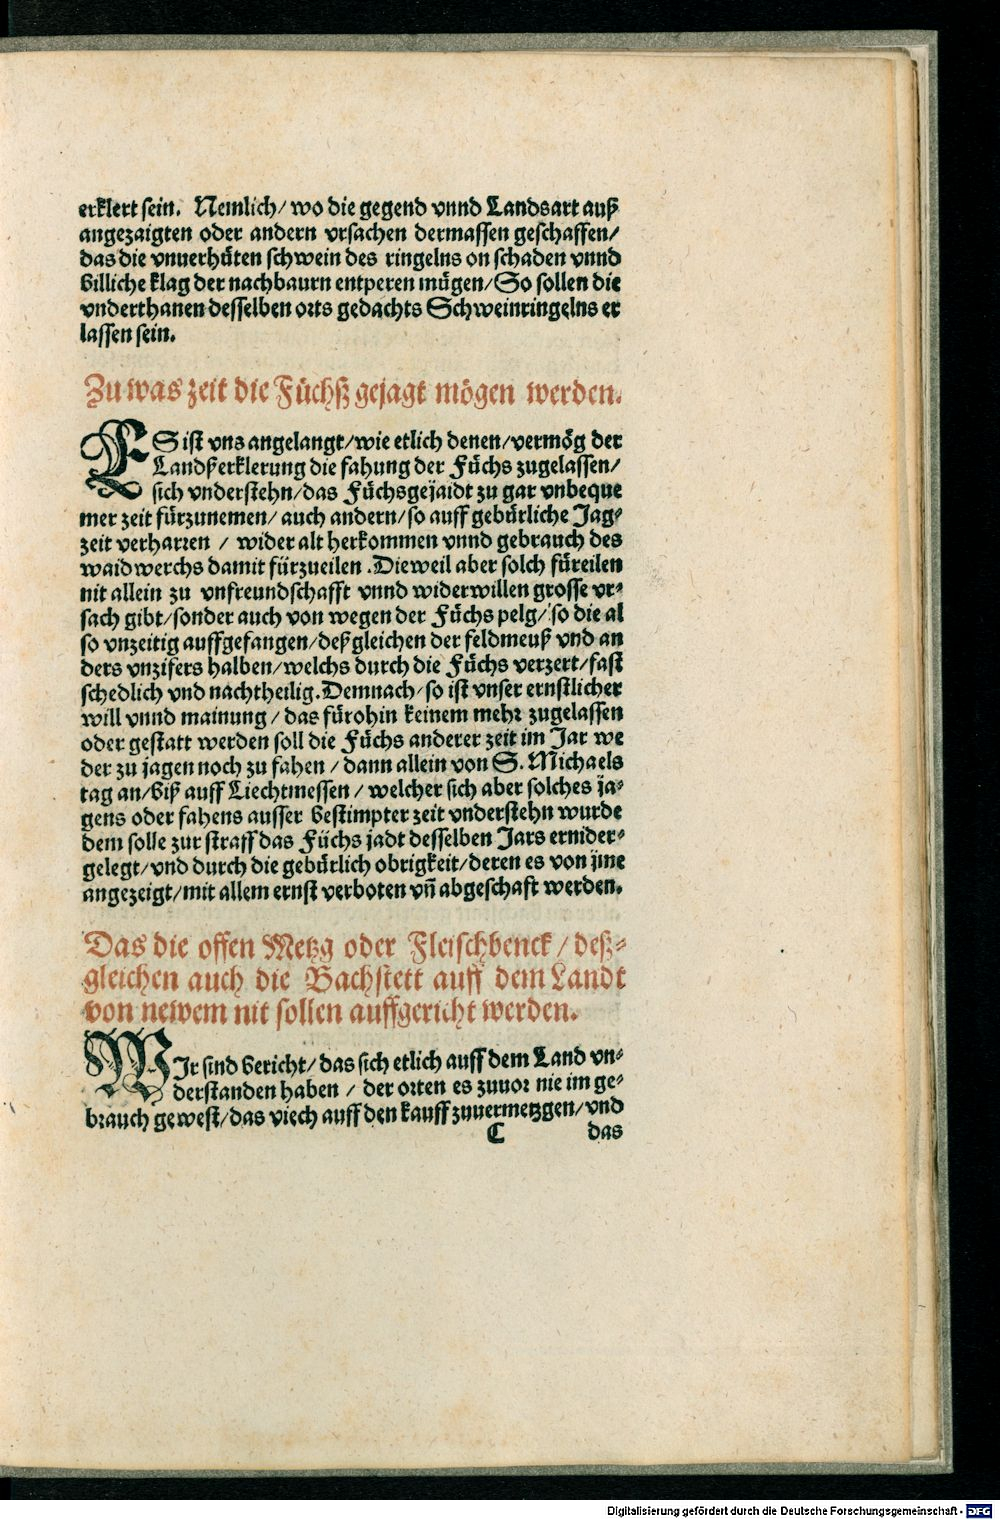 erklert sein. Nemlich/ wo die gegend vnnd Landsart auß
angezaigten oder andern vrsachen dermassen geschaffen/
das die vnuerhüten schwein des ringelns on schaden vnnd
billiche klag der nachbaurn entperen mügen/ So sollen die
vnderthanen desselben orts gedachts Schweinringelns er
lassen sein.
Zu was zeit die Füchß gejagt mögen werden.
ES ist vns angelangt/ wie etlich denen/ vermög der
Landßerklerung die fahung der Füchs zugelassen/
sich vnderstehn/ das Füchsgejaidt zu gar vnbeque
mer zeit fürzunemen/ auch andern/ so auff gebürliche Jag⸗
zeit verharren / wider alt herkommen vnnd gebrauch des
waidwerchs damit fürzueilen. Dieweil aber solch füreilen
nit allein zu vnfreundschafft vnnd widerwillen grosse vr⸗
sach gibt/ sonder auch von wegen der Füchs pelg/ so die al
so vnzeitig auffgefangen/ deßgleichen der feldmeuß vnd an
ders vnzifers halben/ welchs durch die Füchs verzert/ fast
schedlich vnd nachtheilig. Demnach/ so ist vnser ernstlicher
will vnnd mainung / das fürohin keinem mehr zugelassen
oder gestatt werden soll die Füchs anderer zeit im Jar we
der zu jagen noch zu fahen / dann allein von S. Michaels
tag an/ biß auff Liechtmessen / welcher sich aber solches ja⸗
gens oder fahens ausser bestimpter zeit vnderstehn wurde
dem solle zur straff das Füchs jadt desselben Jars ernider⸗
gelegt/ vnd durch die gebürlich obrigkeit/ deren es von jme
angezeigt/ mit allem ernst verboten vñ abgeschaft werden.
Das die offen Metzg oder Fleischbenck / deß⸗
gleichen auch die Bachstett auff dem Landt
von newem nit sollen auffgericht werden.
WIr sind bericht/ das sich etlich auff dem Land vn⸗
derstanden haben / der orten es zuuor nie im ge⸗
brauch gewest/ das viech auff den kauff zuuermetzgen/ vnd
C das
Digitalisierung gefördert durch die Deutsche Forschungsgemeinschaft - DFG